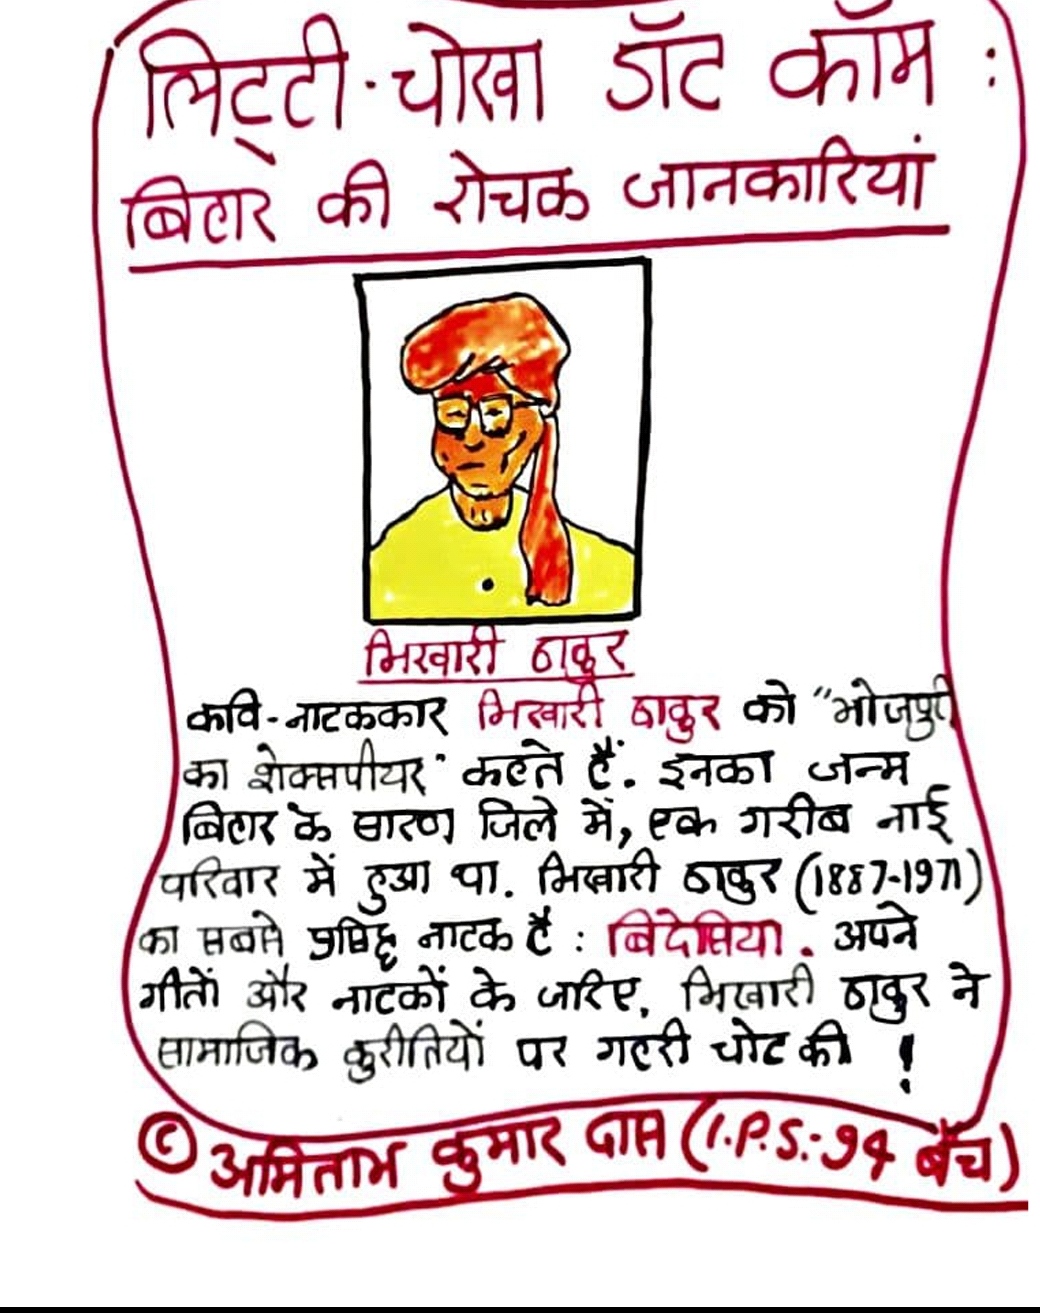 लिट्टी-चोखा डॉट कॉम :
बिहार की रोचक जानकारियां
भिखारी ठाकुर
कवि-नाटककार भिखारी ठाकुर को "भोजपुरी
का शेक्सपीयर" कहते हैं. इनका जन्म
बिहार के सारण जिले में, एक गरीब नाई
परिवार में हुआ था. भिखारी ठाकुर (1887-1971)
का सबसे प्रसिद्ध नाटक है : बिदेसिया. अपने
गीतों और नाटकों के जरिए, भिखारी ठाकुर ने
सामाजिक कुरीतियों पर गहरी चोट की !
© अमिताभ कुमार दास (I.P.S.:-94 बैच)